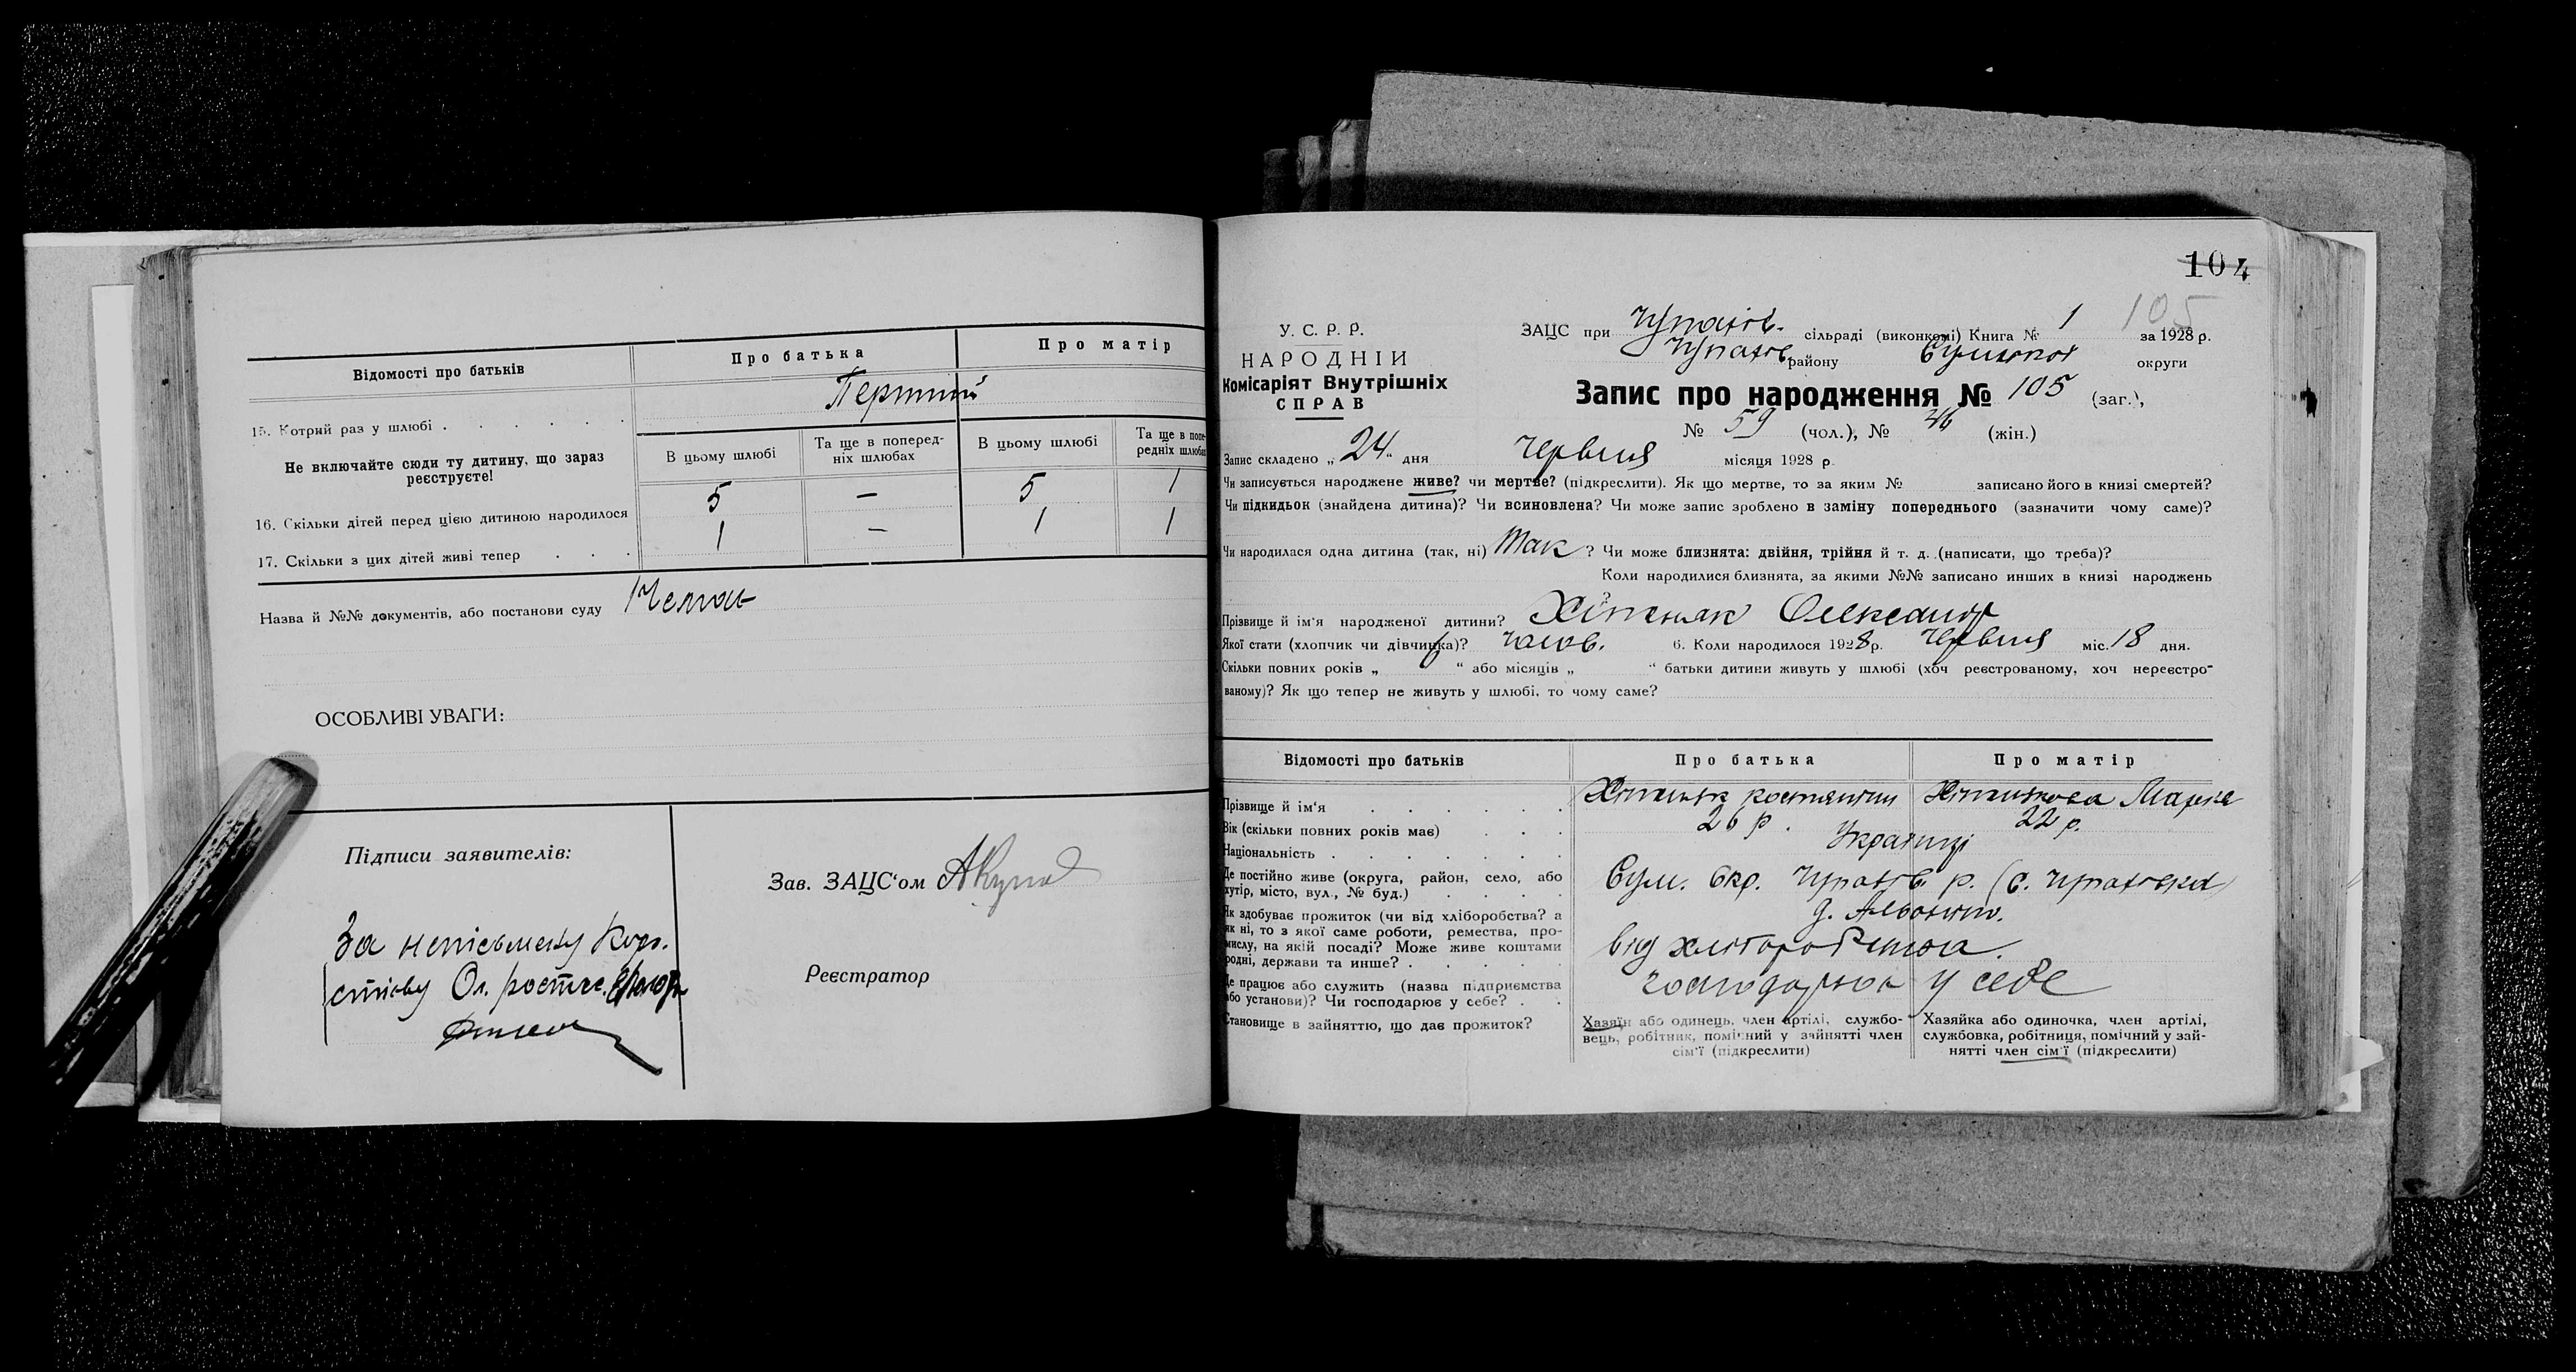 Відомості про батьків
Про батька
Про матір
15. Котрий раз у шлюбі
Перший
Не включайте сюди ту дитину, що зараз реєструєте!
В цьому шлюбі
Та ще в поперед-
ніх шлюбах
В цьому шлюбі
Та ще в попе-
редніх шлюбах
16. Скільки дітей перед цією дитиною народилося
5 — 5 1
17. Скільки з цих дітей живі тепер
1 — 1 1
Назва й №№ документів, або постанови суду Немає
ОСОБЛИВІ УВАГИ:
Підписи заявителів:
За неписьмену
Зав. ЗАЦС'ом
Реєстратор
104
105
У. С. Р. Р.
НАРОДНІЙ
Комісаріят Внутрішніх
СПРАВ
ЗАЦС при Чупахів. сільраді (виконкомі) Книга № 1 за 1928 р.
Чупахів. району Сумської округи
Запис про народження № 105 (заг.),
№ 59 (чол.), № 46 (жін.)
Запис складено „24" дня Червня місяця 1928 р.
Чи записується народжене живе? чи мертве? (підкреслити). Як що мертве, то за яким № записано його в книзі смертей?
Чи підкидьок (знайдена дитина)? Чи всиновлена? Чи може запис зроблено в заміну попереднього (зазначити чому саме)?
Чи народилася одна дитина (так, ні) Так ? Чи може близнята: двійня, трійня й т. д. (написати, що треба)?
Коли народилися близнята, за якими №№ записано инших в книзі народжень
Прізвище й ім'я народженої дитини? Олександр
Якої стати (хлопчик чи дівчинка)? чолов. 6. Коли народилося 1928 р. Червня міс. 18 дня.
Скільки повних років „ 6 " або місяців „ " батьки дитини живуть у шлюбі (хоч реєстрованому, хоч нереєстро-
ваному)? Як що тепер не живуть у шлюбі, то чому саме?
Відомості про батьків
Про батька
Про матір
Прізвище й ім'я
Костянтин
Марія
Вік (скільки повних років має)
26 р.
22 р.
Національність
Українці
Де постійно живе (округа, район, село, або
хутір, місто, вул., № буд.)
Сум. Окр. Чупахів. р.
Як здобуває прожиток (чи від хліборобства? а
як ні, то з якої саме роботи, ремества, про-
мислу, на якій посаді? Може живе коштами
родні, держави та инше?
Від хліборобства.
Де працює або служить (назва підприємства
або установи)? Чи господарює у себе?
господарює у себе
Становище в зайняттю, що дає прожиток?
Хазяїн або одинець, член артілі, службо-
вець, робітник, помічний у зайнятті член
сім'ї (підкреслити)
Хазяйка або одиночка, член артілі,
службовка, робітниця, помічний у зай-
нятті член сім'ї (підкреслити)